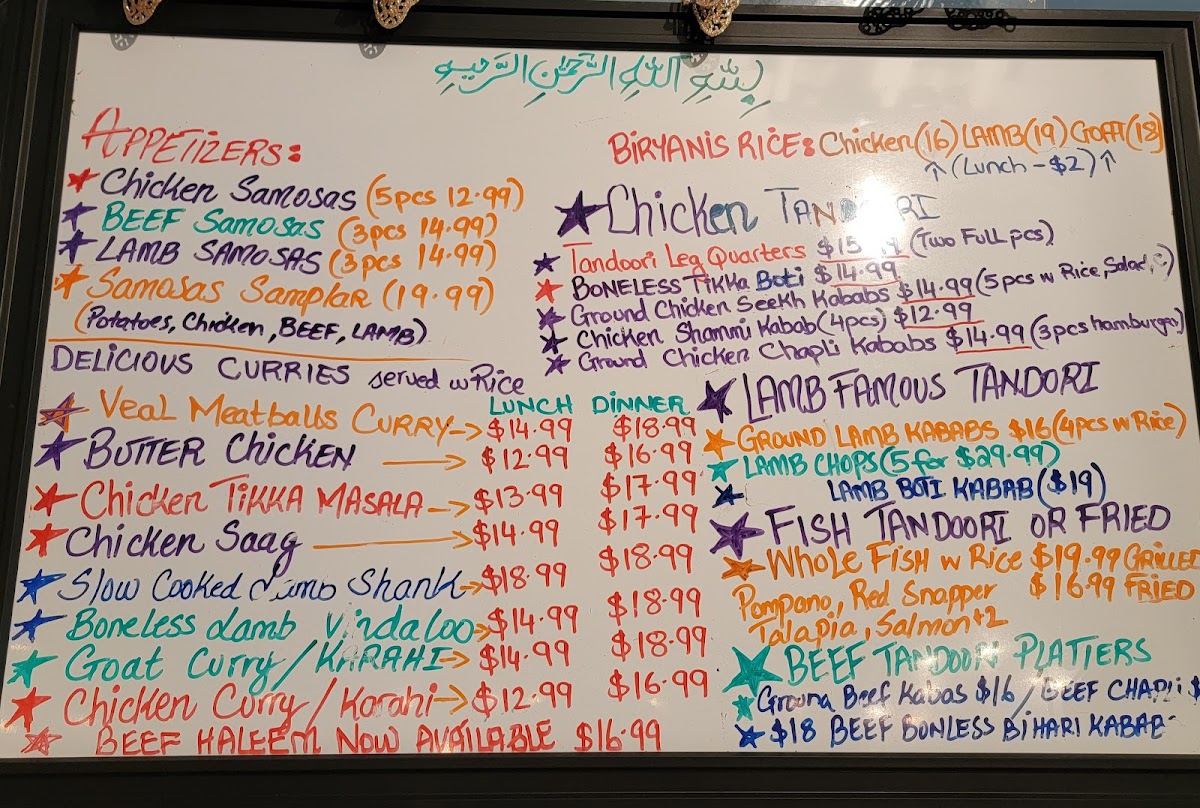 بِسْمِ اللهِ الرَّحْمٰنِ الرَّحِيمِ
APPETIZERS:
Chicken SAMOSAS (5pcs 12.99)
BEEF SAMOSAS (3pcs 14.99)
LAMB SAMOSAS (3pcs 14.99)
Samosas Samplar (19.99)
(Potatoes, Chicken, BEEF, LAMB)
DELICIOUS CURRIES served w Rice
LUNCH DINNER
Veal Meatballs CURRY → $14.99 $18.99
BUTTER Chicken → $12.99 $16.99
Chicken TIKKA MASALA → $13.99 $17.99
Chicken Saag → $14.99 $17.99
Slow Cooked Lamb Shank → $18.99 $18.99
Boneless Lamb Vindaloo → $14.99 $18.99
Goat Curry/KARAHI → $14.99 $18.99
Chicken Curry/Karahi → $12.99 $16.99
BEEF HALEEM NOW AVAILABLE $16.99
BIRYANIS RICE: Chicken (16) LAMB (19) GOAT (18)
↑ (Lunch - $2) ↑
Chicken TANDOORI
Tandoori Leg Quarters (Two Full pcs)
BONELESS TIKKA Boti $14.99
Ground Chicken Seekh Kababs $14.99 (5pcs w Rice, Salad,
Chicken Shammi Kabab (4pcs) $12.99
Ground Chicken Chapli Kababs $14.99 (3pcs hamburger)
LAMB FAMOUS TANDORI
GROUND LAMB KABABS $16 (4pcs w Rice)
LAMB CHOPS (5 for $29.99)
LAMB BOTI KABAB ($19)
FISH TANDOORI OR FRIED
WHOLE FISH w RICE $19.99 GRILLED
$16.99 FRIED
Pompano, Red Snapper
Talapia, Salmon +2
BEEF TANDOORI PLATTERS
Ground Beef Kabas $16 / BEEF CHAPLI $
$18 BEEF BONLESS BIHARI KABAB